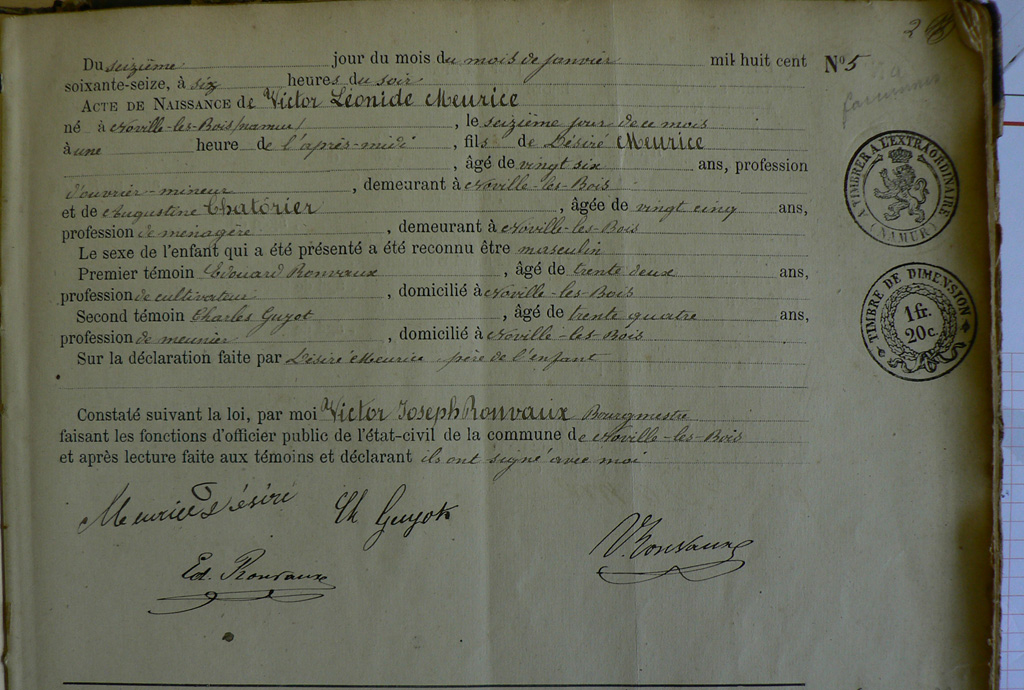 2
Du seizième jour du mois du mois de janvier mil huit cent
Nº 5
soixante-seize, à six heures du soir
ACTE DE NAISSANCE de Victor Léonide Meurice
né à Noville-les-Bois (namur) , le seizième jour de ce mois
à une heure de l'après-midi , fils de Désiré Meurice
, âgé de vingt six ans, profession
d'ouvrier-mineur , demeurant à Noville-les-Bois
et de Augustine Chatórier , âgée de vingt cinq ans,
profession de menagère , demeurant à Noville-les-Bois
Le sexe de l'enfant qui a été présenté a été reconnu être masculin
Premier témoin Edouard Ronvaux , âgé de trente deux ans,
profession de cultivateur , domicilié à Noville-les-Bois
Second témoin Charles Guyot , âgé de trente quatre ans,
profession de meunier , domicilié à Noville-les-Bois
Sur la déclaration faite par Désiré Meurice père de l'enfant
Constaté suivant la loi, par moi Victor Joseph Ronvaux Bourgmestre
faisant les fonctions d'officier public de l'état-civil de la commune de Noville-les-Bois
et après lecture faite aux témoins et déclarant ils ont signé avec moi
Meurice Désiré
Ch Guyot
V. Ronvaux
Ed. Ronvaux
A TIMBRER A L'EXTRAORDINAIRE
(NAMUR)
TIMBRE DE DIMENSION
1 fr.
20 c.